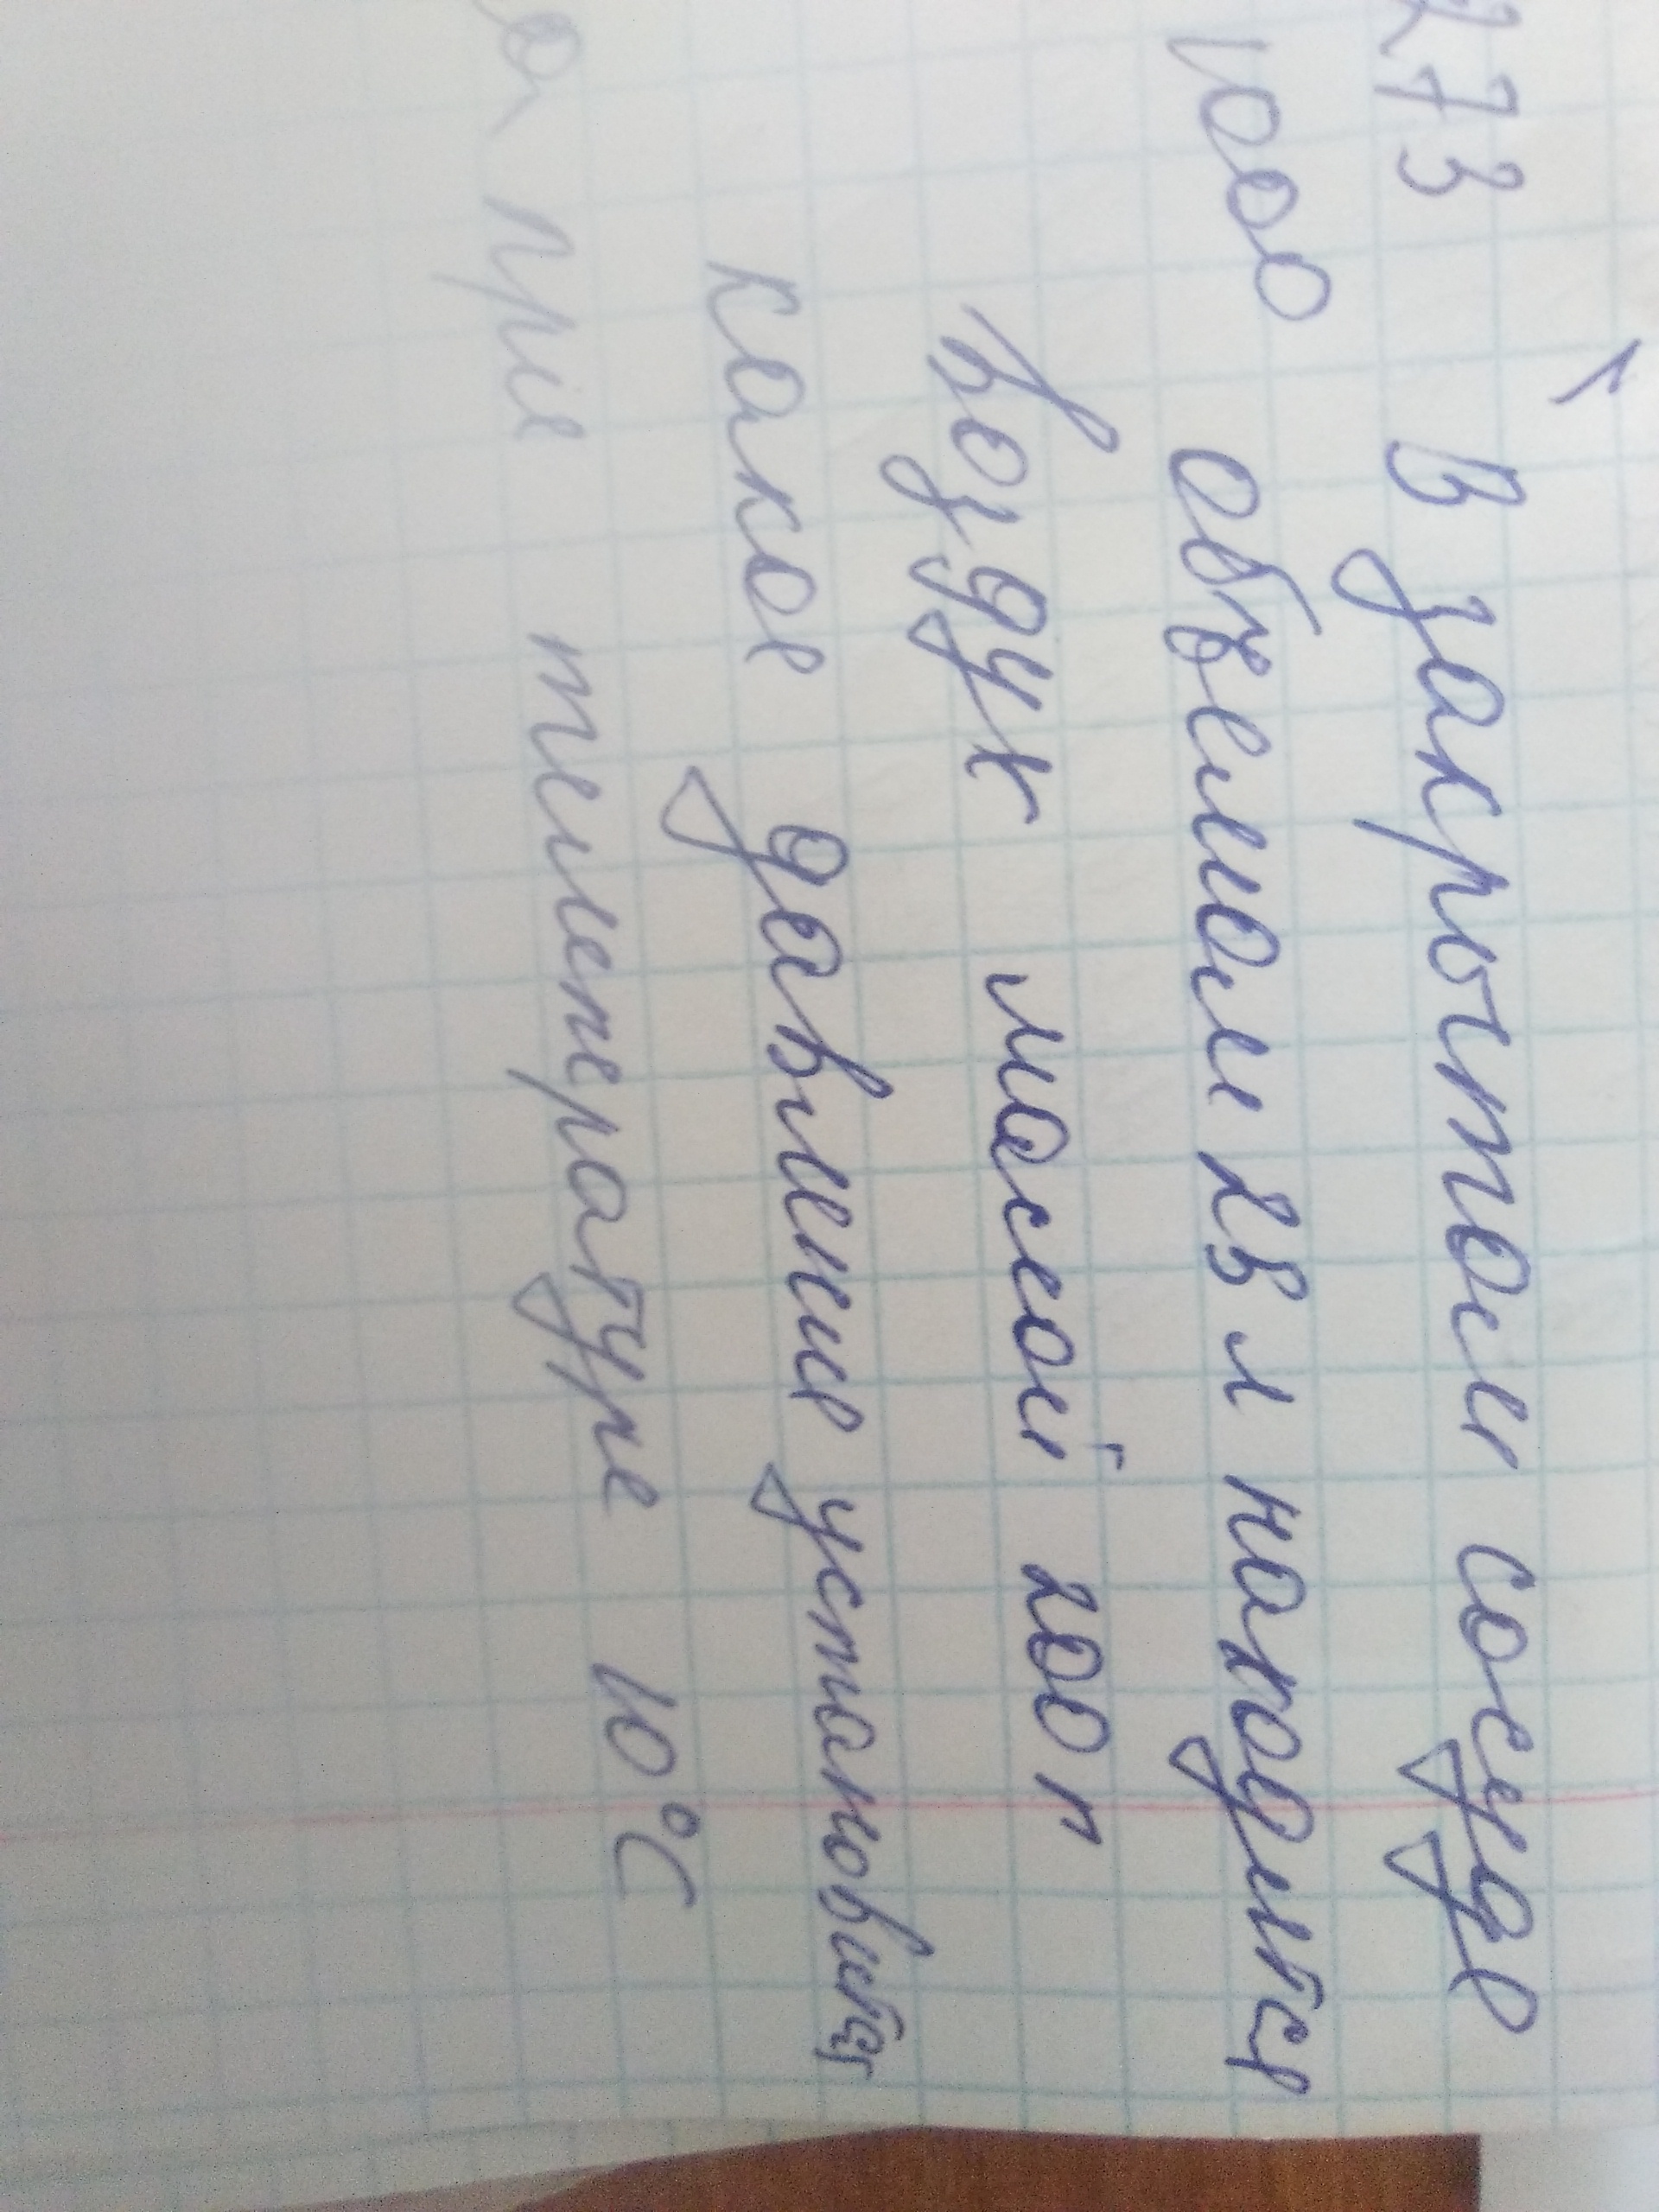 273
В закрытом сосуде
1000 объемом 28 л находится
воздух массой 200 г
какое давление установится
а при температуре 10°C